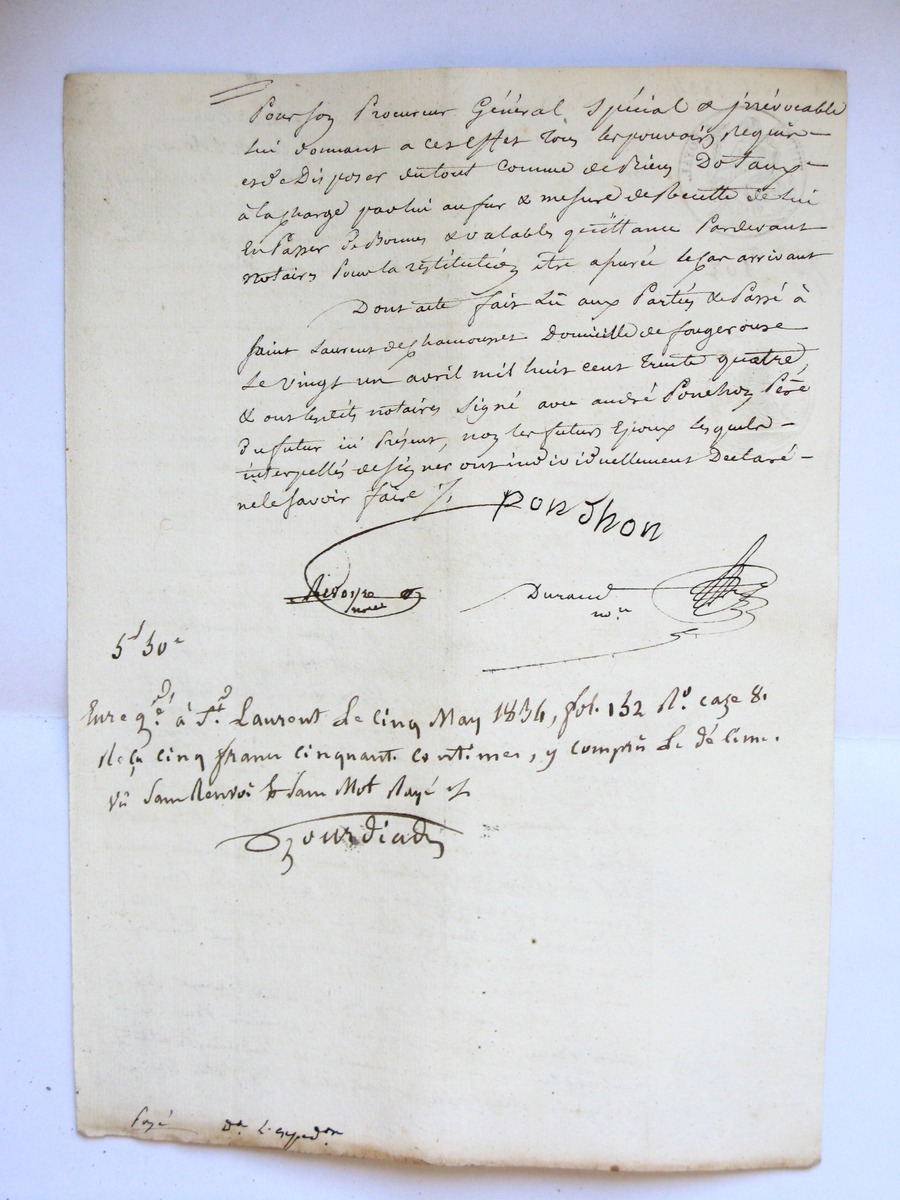 Pour son Procureur Général Spécial & jrrévocable
lui donnant a cet Effet tous les pouvoirs Requis
et de Disposer du tout comme de Biens Dotaux
à la charge par lui au fur & mesure de Recette de lui
En Passer De Bonnes & valables quittance Pardevant
notaires Pour la restitution être apurée le cas arrivant
Dont acte fait Lû aux Parties & Passé à
Saint Laurent de Chamousset Domicille de fougerouse
Le vingt un avril mil huit cent trente quatre
& ont lesdits notaires Signé avec andré Ponchon Père
Du futur ici Présent, non les futurs Epoux Lesquels
interpellés de signer ont individuellement Declaré
ne le Savoir faire
ponchon
nore
Durand
nore
5f 50c
Enregré à St. Laurent Le cinq May 1834, fol. 132 Ro. case 8.
Reçu cinq francs cinquante centimes, y compris Le décime.
vû Sans Renvoi & Sans Mot Rayé
Payé